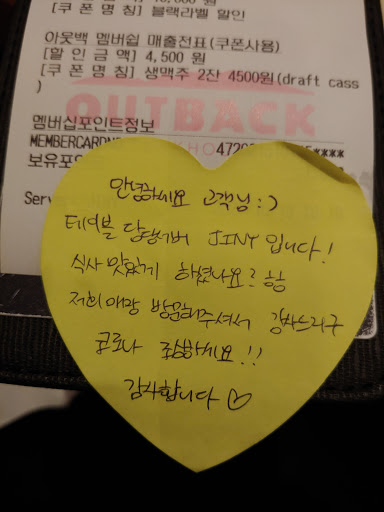 [쿠 폰 명 칭] 블랙라벨 할인
아웃백 멤버쉽 매출전표(쿠폰사용)
[할 인 금 액] 4,500 원
[쿠 폰 명 칭] 생맥주 2잔 4500원(draft cass
)
OUTBACK
멤버십포인트정보
MEMBERCARDN
****
보유포인
Ser
안녕하세요 고객님 : )
테이블 담당서버 JINY 입니다!
식사 맛있게 하셨나요? ㅎㅎ
저희매장 방문해주셔서 감사드리구
코로나 조심하세요!!
감사합니다 ♡